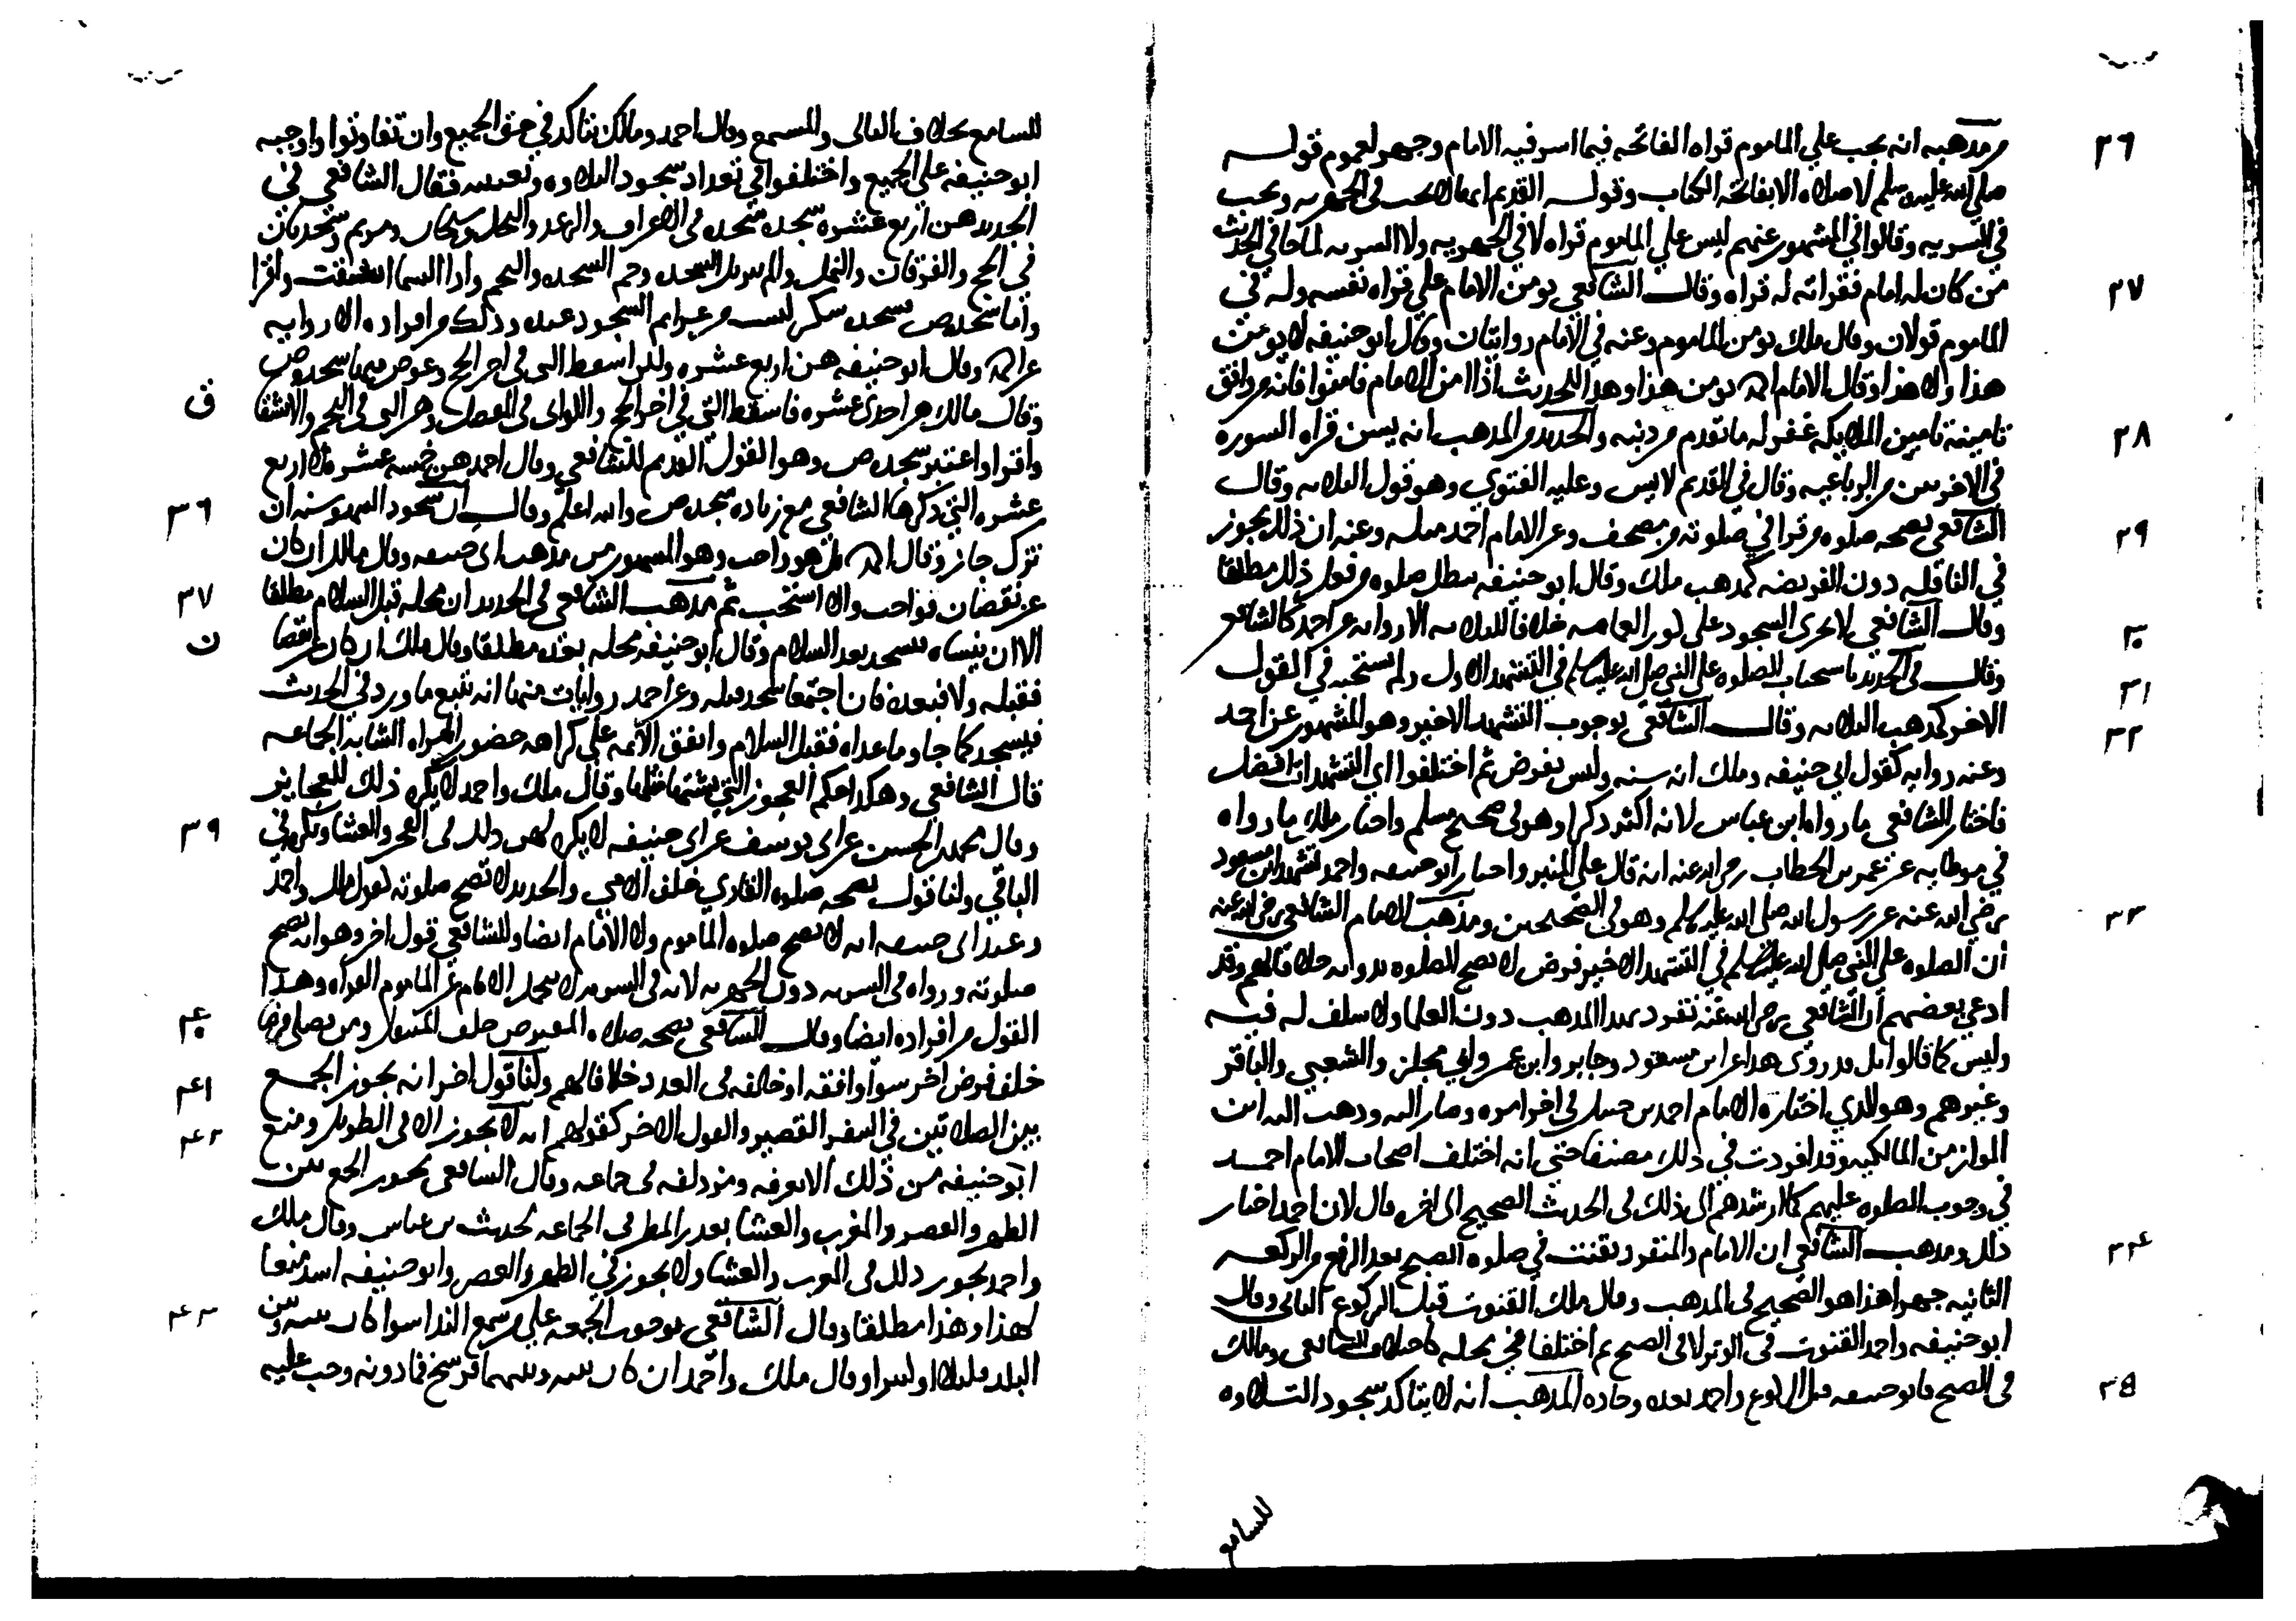 ٢٦ من مذهبه انه يجب على الماموم قراه الفاتحه فيما اسر فيه الامام وجهر لعموم قوله
صلى الله عليه وسلم لا صلاه الا بفاتحه الكتاب وقوله القديم انها لا تجب فى الجهريه وتجب
في السريه وقالوا في المشهور عنهم ليس علي الماموم قراه لا في الجهريه ولا السريه لما جا في الحديث
٢٧ من كان له امام فقراته له قراه وقال الشافعي يومن الامام علي قراه نفسه وله في
الماموم قولان وقال ملك يومن الماموم وعنه في الامام روايتان وقال ابو حنيفه لا يومن
هذا ولا هذا وقال الامام احمد يومن هذا وهذا لحديث اذا امن الامام فامنوا فانه من وافق
٢٨ تامينه تامين الملايكه غفر له ما تقدم من ذنبه والجديد من المذهب انه يسن قراه السوره
في الاخريين من الرباعيه وقال في القديم لا يسن وعليه الفتوي وهو قول الثلاثه وقال
٢٩ الشافعي بصحه صلوه من قرا في صلوته من مصحف وعن الامام احمد مثله وعنه ان ذلك يجوز
في النافله دون الفريضه كمذهب ملك وقال ابو حنيفه تبطل صلوه من فعل ذلك مطلقا
٣٠ وقال الشافعي لا يجزى السجود على كور العمامه خلافا للثلاثه الا روايه عن احمد كالشافعي
٣١ وقال في الجديد باستحباب الصلوه على النبي صلى الله عليه وسلم في التشهد الاول ولم يستحبه في القول
٣٢ الاخر كمذهب الثلاثه وقال الشافعي بوجوب التشهد الاخير وهو المشهور عن احمد
وعنه روايه كقول ابي حنيفه وملك انه سنه وليس بفرض ثم اختلفوا اي التشهدات افضل
فاختار الشافعي ما رواه ابن عباس لانه اكثر ذكرا وهو في صحيح مسلم واختار ملك ما رواه
في موطايه عن عمر بن الخطاب رضي الله عنه انه قال على المنبر واختار ابو حنيفه واحمد تشهد ابن مسعود
٣٣ رضي الله عنه عن رسول الله صلى الله عليه وسلم وهو في الصحيحين ومذهب الامام الشافعي رضي الله عنه
ان الصلوه على النبي صلى الله عليه وسلم في التشهد الاخير فرض لا تصح الصلوه بدونه خلافا لهم وقد
ادعي بعضهم ان الشافعي رضي الله عنه تفرد بهذا المذهب دون العلما ولا سلف له فيه
وليس كما قالوا بل قد روي هذا عن ابن مسعود وجابر وابن عمر وابي مجلز والشعبي والباقر
وغيرهم وهو الذي اختاره الامام احمد بن حنبل في اخر امره وصار اليه وذهب اليه ابن
المواز من المالكيه وقد افردت في ذلك مصنفا حتى انه اختلف اصحاب الامام احمد
في وجوب الصلوه عليهم كما ارشدهم الى ذلك في الحديث الصحيح الى اخره قال لان احمد اختار
٣٤ ذلك ومذهب الشافعي ان الامام والمنفرد يقنت في صلوه الصبح بعد الرفع من الركعه
الثانيه جهرا هذا هو الصحيح في المذهب وقال ملك القنوت قبل الركوع الثاني وقال
ابو حنيفه واحمد القنوت في الوتر لا في الصبح ثم اختلفا في محله كاختلاف الشافعي ومالك
٣٥ في الصبح فابو حنيفه قبل الركوع واحمد بعده وجاده المذهب انه لا يتاكد سجود التلاوه
للسامع
للسامع بخلاف التالى والمستمع وقال احمد ومالك يتاكد في حق الجميع وان تفاوتوا واوجبه
ابو حنيفه على الجميع واختلفوا في تعداد سجود التلاوه وتعيينه فقال الشافعي في
الجديد هن اربع عشره سجده سجده في الاعراف والرعد والنحل وسبحان ومريم وسجدتان
في الحج والفرقان والنمل والم تنزيل السجده وحم السجده والنجم واذا السما انشقت واقرا
واما سجده ص سجده شكر ليست من عزايم السجود عنده وذلك من افراده الا روايه
عن احمد وقال ابو حنيفه هن اربع عشره ولكن اسقط التى في اخر الحج وعوض عنها سجده ص
ق وقال مالك هن احدى عشره فاسقط التي في اخر الحج واللواتى في المفصل وهى التى في النجم والانشقا
واقرا واعتبر سجده ص وهو القول القديم للشافعي وقال احمد هن خمسه عشره هذه الاربع
٣٦ عشره التي ذكرها الشافعي مع زياده سجده ص والله اعلم وقال ان سجود السهو سنه ان
ترك جاز وقال احمد بل هو واجب وهو المشهور من مذهب ابي حنيفه وقال مالك ان كان
٣٧ عن نقصان فواجب والا استحب ثم مذهب الشافعي في الجديد ان محله قبل السلام مطلقا
ن الا ان ينساه فيسجد بعد السلام وقال ابو حنيفه محله بعده مطلقا وقال ملك ان كان عن نقصا
فقبله والا فبعده فان اجتمعا سجد قبله وعن احمد روايات منها انه يتبع ما ورد في الحديث
فيسجد كما جا وما عداه فقبل السلام واتفق الائمه على كراهه حضور المراه الشابه الجماعه
قال الشافعي وهكذا حكم العجوز التي يشتهى مثلها وقال ملك واحمد لا يكره ذلك للعجايز
٣٩ وقال محمد بن الحسن عن ابي يوسف عن ابي حنيفه لا يكره لهن ذلك في الفجر والعشا ويكره في
الباقي ولنا قول بصحه صلوه القاري خلف الامي والجديد لا تصح صلوته كقول ملك واحمد
وعند ابي حنيفه انه لا تصح صلوه الماموم ولا الامام ايضا وللشافعي قول اخر وهو انه تصح
صلوته وراه في السريه دون الجهريه لانه في السريه لا يتحمل الامام عن الماموم القراه وهذا
٤٠ القول من افراده ايضا وقال الشافعي بصحه صلاه المفترض خلف المتنفل ومن يصلى فرضا
٤١ خلف فرض اخر سوا وافقه او خالفه في العدد خلافا لهم ولنا قول اخر انه يجوز الجمع
٤٢ بين الصلاتين في السفر القصير والقول الاخر كقولهم انه لا يجوز الا في الطويل ومنع
ابو حنيفه من ذلك الا بعرفه ومزدلفه في جماعه وقال الشافعي بجواز الجمع بين
الظهر والعصر والمغرب والعشا بعذر المطر في الجماعه لحديث بن عباس وقال ملك
واحمد يجوز ذلك في المغرب والعشا ولا يجوز في الظهر والعصر وابو حنيفه اشد منعا
٤٣ لهذا وهذا مطلقا وقال الشافعي بوجوب الجمعه علي من سمع الندا سوا كان بينه وبين
البلد قليلا او كثيرا وقال ملك واحمد ان كان بينه وبينها فرسخ فما دونه وجب عليه